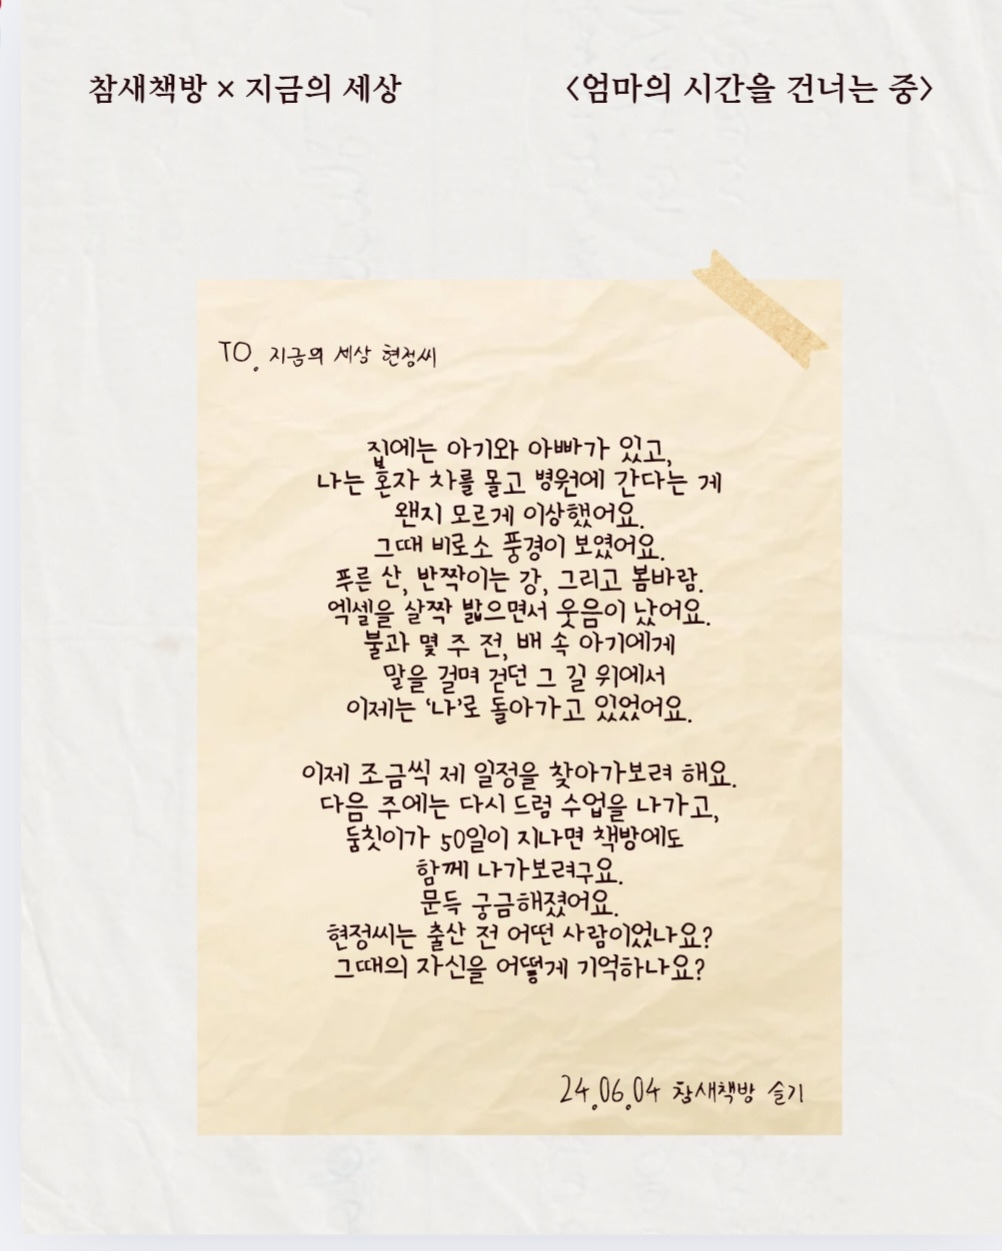 참새책방 × 지금의 세상
<엄마의 시간을 건너는 중>
TO. 지금의 세상 현정씨
집에는 아기와 아빠가 있고,
나는 혼자 차를 몰고 병원에 간다는 게
왠지 모르게 이상했어요.
그때 비로소 풍경이 보였어요.
푸른 산, 반짝이는 강, 그리고 봄바람.
엑셀을 살짝 밟으면서 웃음이 났어요.
불과 몇 주 전, 배 속 아기에게
말을 걸며 걷던 그 길 위에서
이제는 ‘나’로 돌아가고 있었어요.
이제 조금씩 제 일정을 찾아가보려 해요.
다음 주에는 다시 드럼 수업을 나가고,
둠칫이가 50일이 지나면 책방에도
함께 나가보려구요.
문득 궁금해졌어요.
현정씨는 출산 전 어떤 사람이었나요?
그때의 자신을 어떻게 기억하나요?
24.06.04 참새책방 슬기